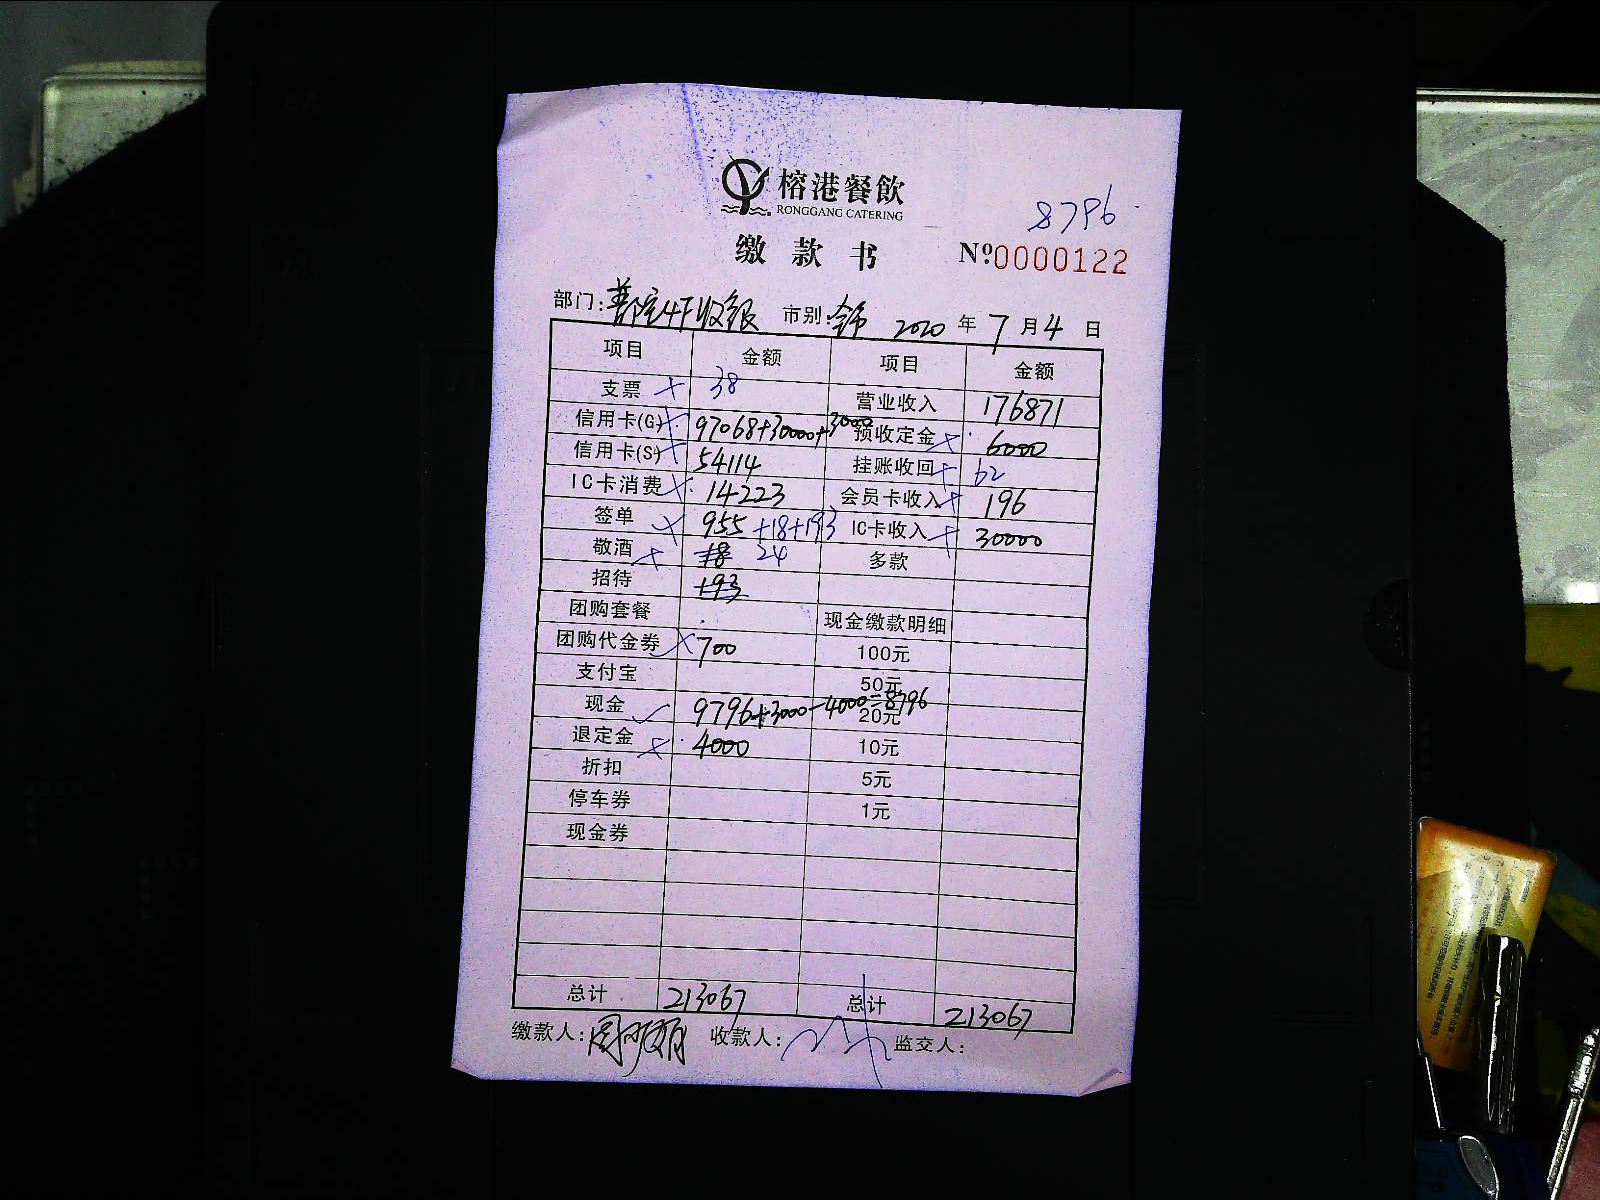 榕港餐飲
RONGGANG CATERING
8796
缴款书 Nº0000122
部门: 市别: 2020 年 7 月 4 日
项目 金额 项目 金额
支票 38 营业收入 176871
信用卡(G) 97068+30000+3000 预收定金 6000
信用卡(S) 54114 挂账收回 62
IC卡消费 14223 会员卡收入 196
签单 955 +18+193 IC卡收入 30000
敬酒 18 24 多款
招待 193
团购套餐 现金缴款明细
团购代金券 700 100元
支付宝 50元
现金 9796+3000-4000=8796 20元
退定金 4000 10元
折扣 5元
停车券 1元
现金券
总计 213067 总计 213067
缴款人: 收款人: 监交人: